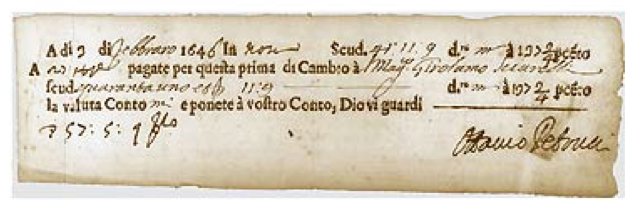 A di 9 di febbraro 1646 In Scud. 41: 11. 9 d. m à 197 2/4 pcéto
A pagate per questa prima di Cambio à Mag. Girolamo
scud. quaranta uno 11:9 d. m à 197 2/4 pcéto
la valuta Conto mi e ponete à vostro Conto, Dio vi guardi
57: 5: 9
Ottavio